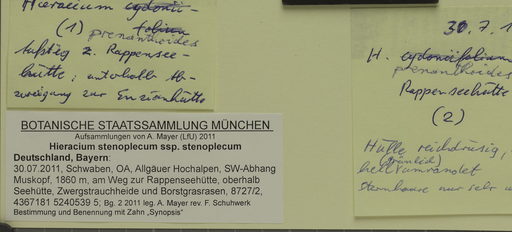 Hieracium cydonii-
(1) folium
prenanthoides
Aufstieg z. Rappensee-
hütte; unterhalb Ab-
zweigung zur Enzianhütte
BOTANISCHE STAATSSAMMLUNG MÜNCHEN
Aufsammlungen von A. Mayer (LfU) 2011
Hieracium stenoplecum ssp. stenoplecum
Deutschland, Bayern:
30.07.2011, Schwaben, OA, Allgäuer Hochalpen, SW-Abhang
Muskopf, 1860 m, am Weg zur Rappenseehütte, oberhalb
Seehütte, Zwergstrauchheide und Borstgrasrasen, 8727/2,
4367181 5240539 5; Bg. 2 2011 leg. A. Mayer rev. F. Schuhwerk
Bestimmung und Benennung mit Zahn „Synopsis"
30.7.1
H. cydoniifolium
prenanthoides
Rappenseehütte
(2)
Hülle reichdrüsig,
(grünlich)
hell umrandet
Sternhaare nur sehr